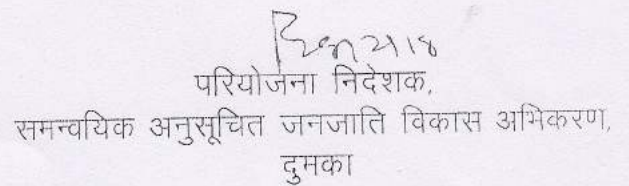 परियोजना निदेशक,
समन्वयिक अनुसूचित जनजाति विकास अभिकरण,
दुमका